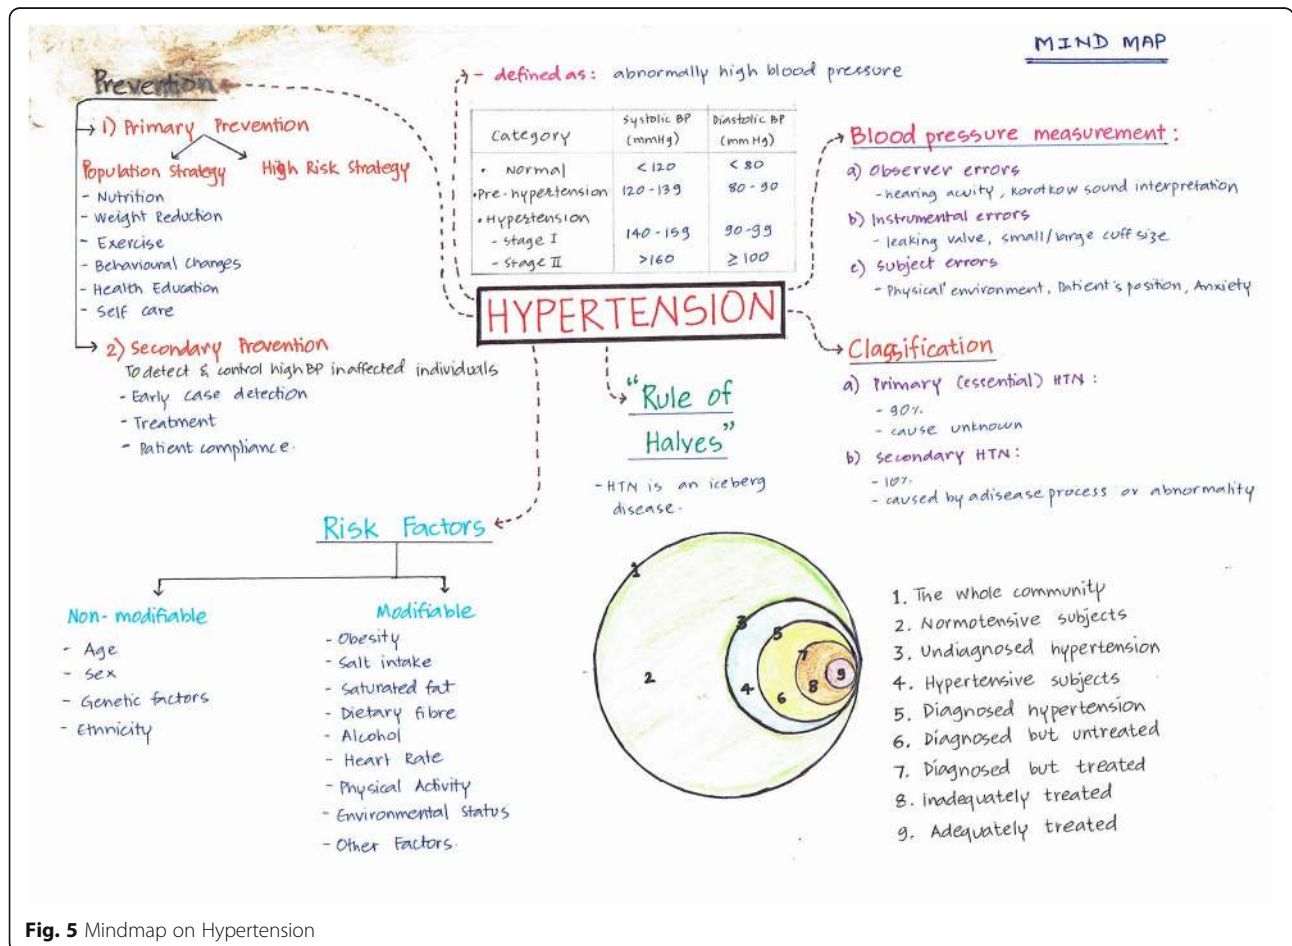 MIND MAP
Prevention
1) Primary Prevention
Population Strategy
- Nutrition
- Weight Reduction
- Exercise
- Behavioural Changes
- Health Education
- Self care
High Risk Strategy
2) Secondary Prevention
To detect & control high BP in affected individuals
- Early case detection
- Treatment
- Patient compliance.
- defined as: abnormally high blood pressure
Category Systolic BP (mmHg) Diastolic BP (mmHg)
• Normal <120 <80
• Pre-hypertension 120-139 80-90
• Hypertension
- Stage I 140-159 90-99
- Stage II >160 ≥100
HYPERTENSION
Blood pressure measurement:
a) Observer errors
- hearing acuity, Korotkow sound interpretation
b) Instrumental errors
- leaking valve, small/large cuff size
c) Subject errors
- Physical environment, Patient's position, Anxiety
Classification
a) Primary (essential) HTN:
- 90%
- cause unknown
b) Secondary HTN:
- 10%
- caused by a disease process or abnormality
"Rule of
Halves"
- HTN is an iceberg
disease.
Risk Factors
Non-modifiable
- Age
- Sex
- Genetic factors
- Ethnicity
Modifiable
- Obesity
- Salt intake
- Saturated fat
- Dietary fibre
- Alcohol
- Heart Rate
- Physical Activity
- Environmental Status
- Other Factors.
1
2
3
4
5
6
7
8
9
1. The whole community
2. Normotensive subjects
3. Undiagnosed hypertension
4. Hypertensive subjects
5. Diagnosed hypertension
6. Diagnosed but untreated
7. Diagnosed but treated
8. inadequately treated
9. Adequately treated
Fig. 5 Mindmap on Hypertension